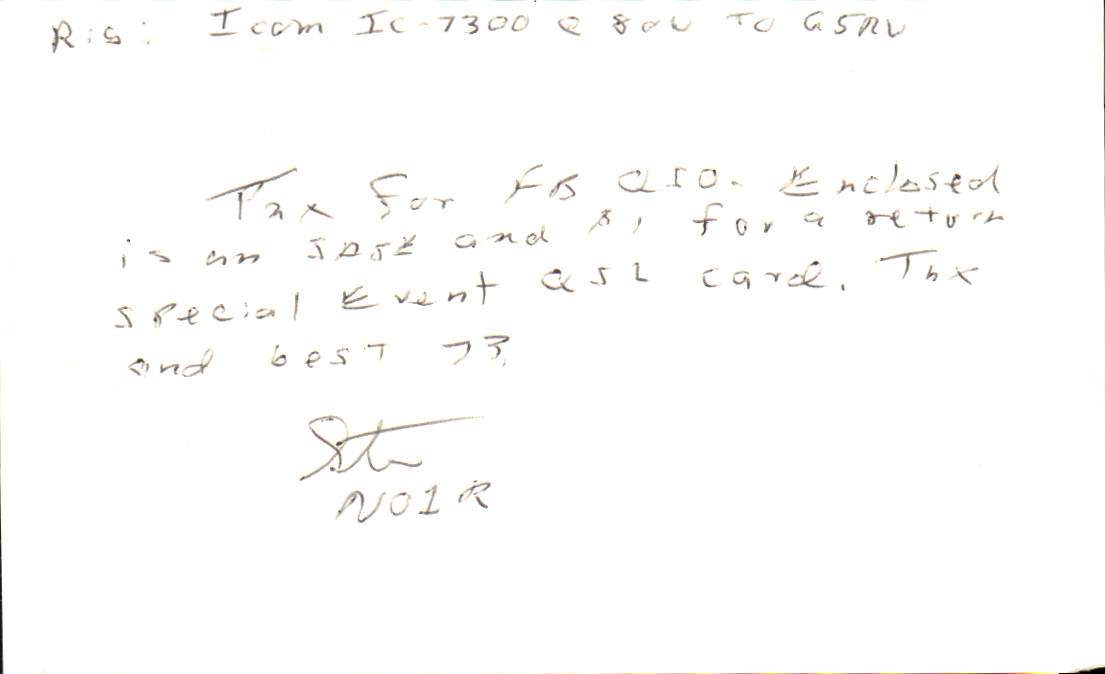 Rig: Icom IC-7300 @ 80W TO G5RV
Tnx for FB QSO. Enclosed
is an SASE and $1 for a return
special Event QSL card. Tnx
and best 73.
NO1R